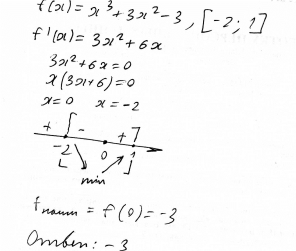 f(x) = x³ + 3x² - 3, [-2; 1]
f'(x) = 3x² + 6x
3x² + 6x = 0
x(3x+6) = 0
x = 0 x = -2
+ - +
-2 0 1
min
fнаим = f(0) = -3
Ответ: -3